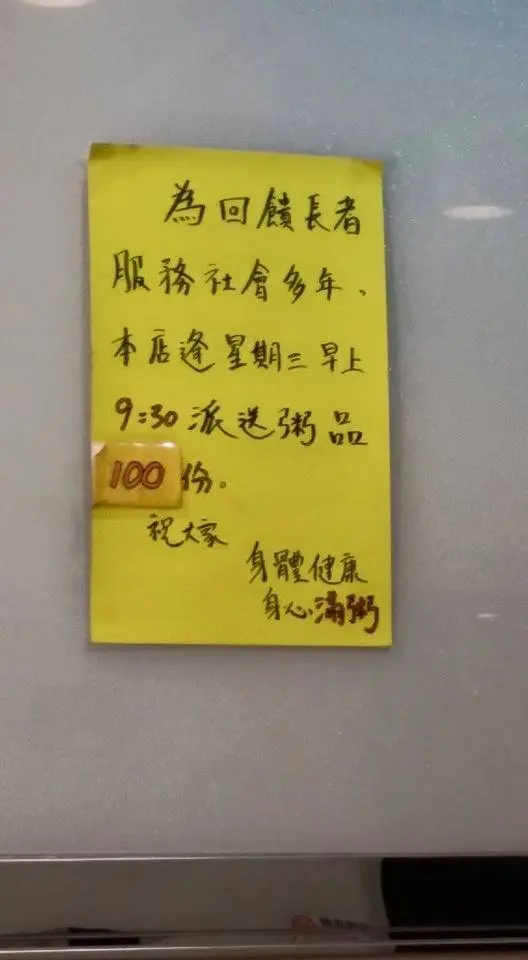 為回饋長者
服務社會多年、
本店逢星期三早上
9:30派送粥品
100份。
祝大家
身體健康
身心滿粥